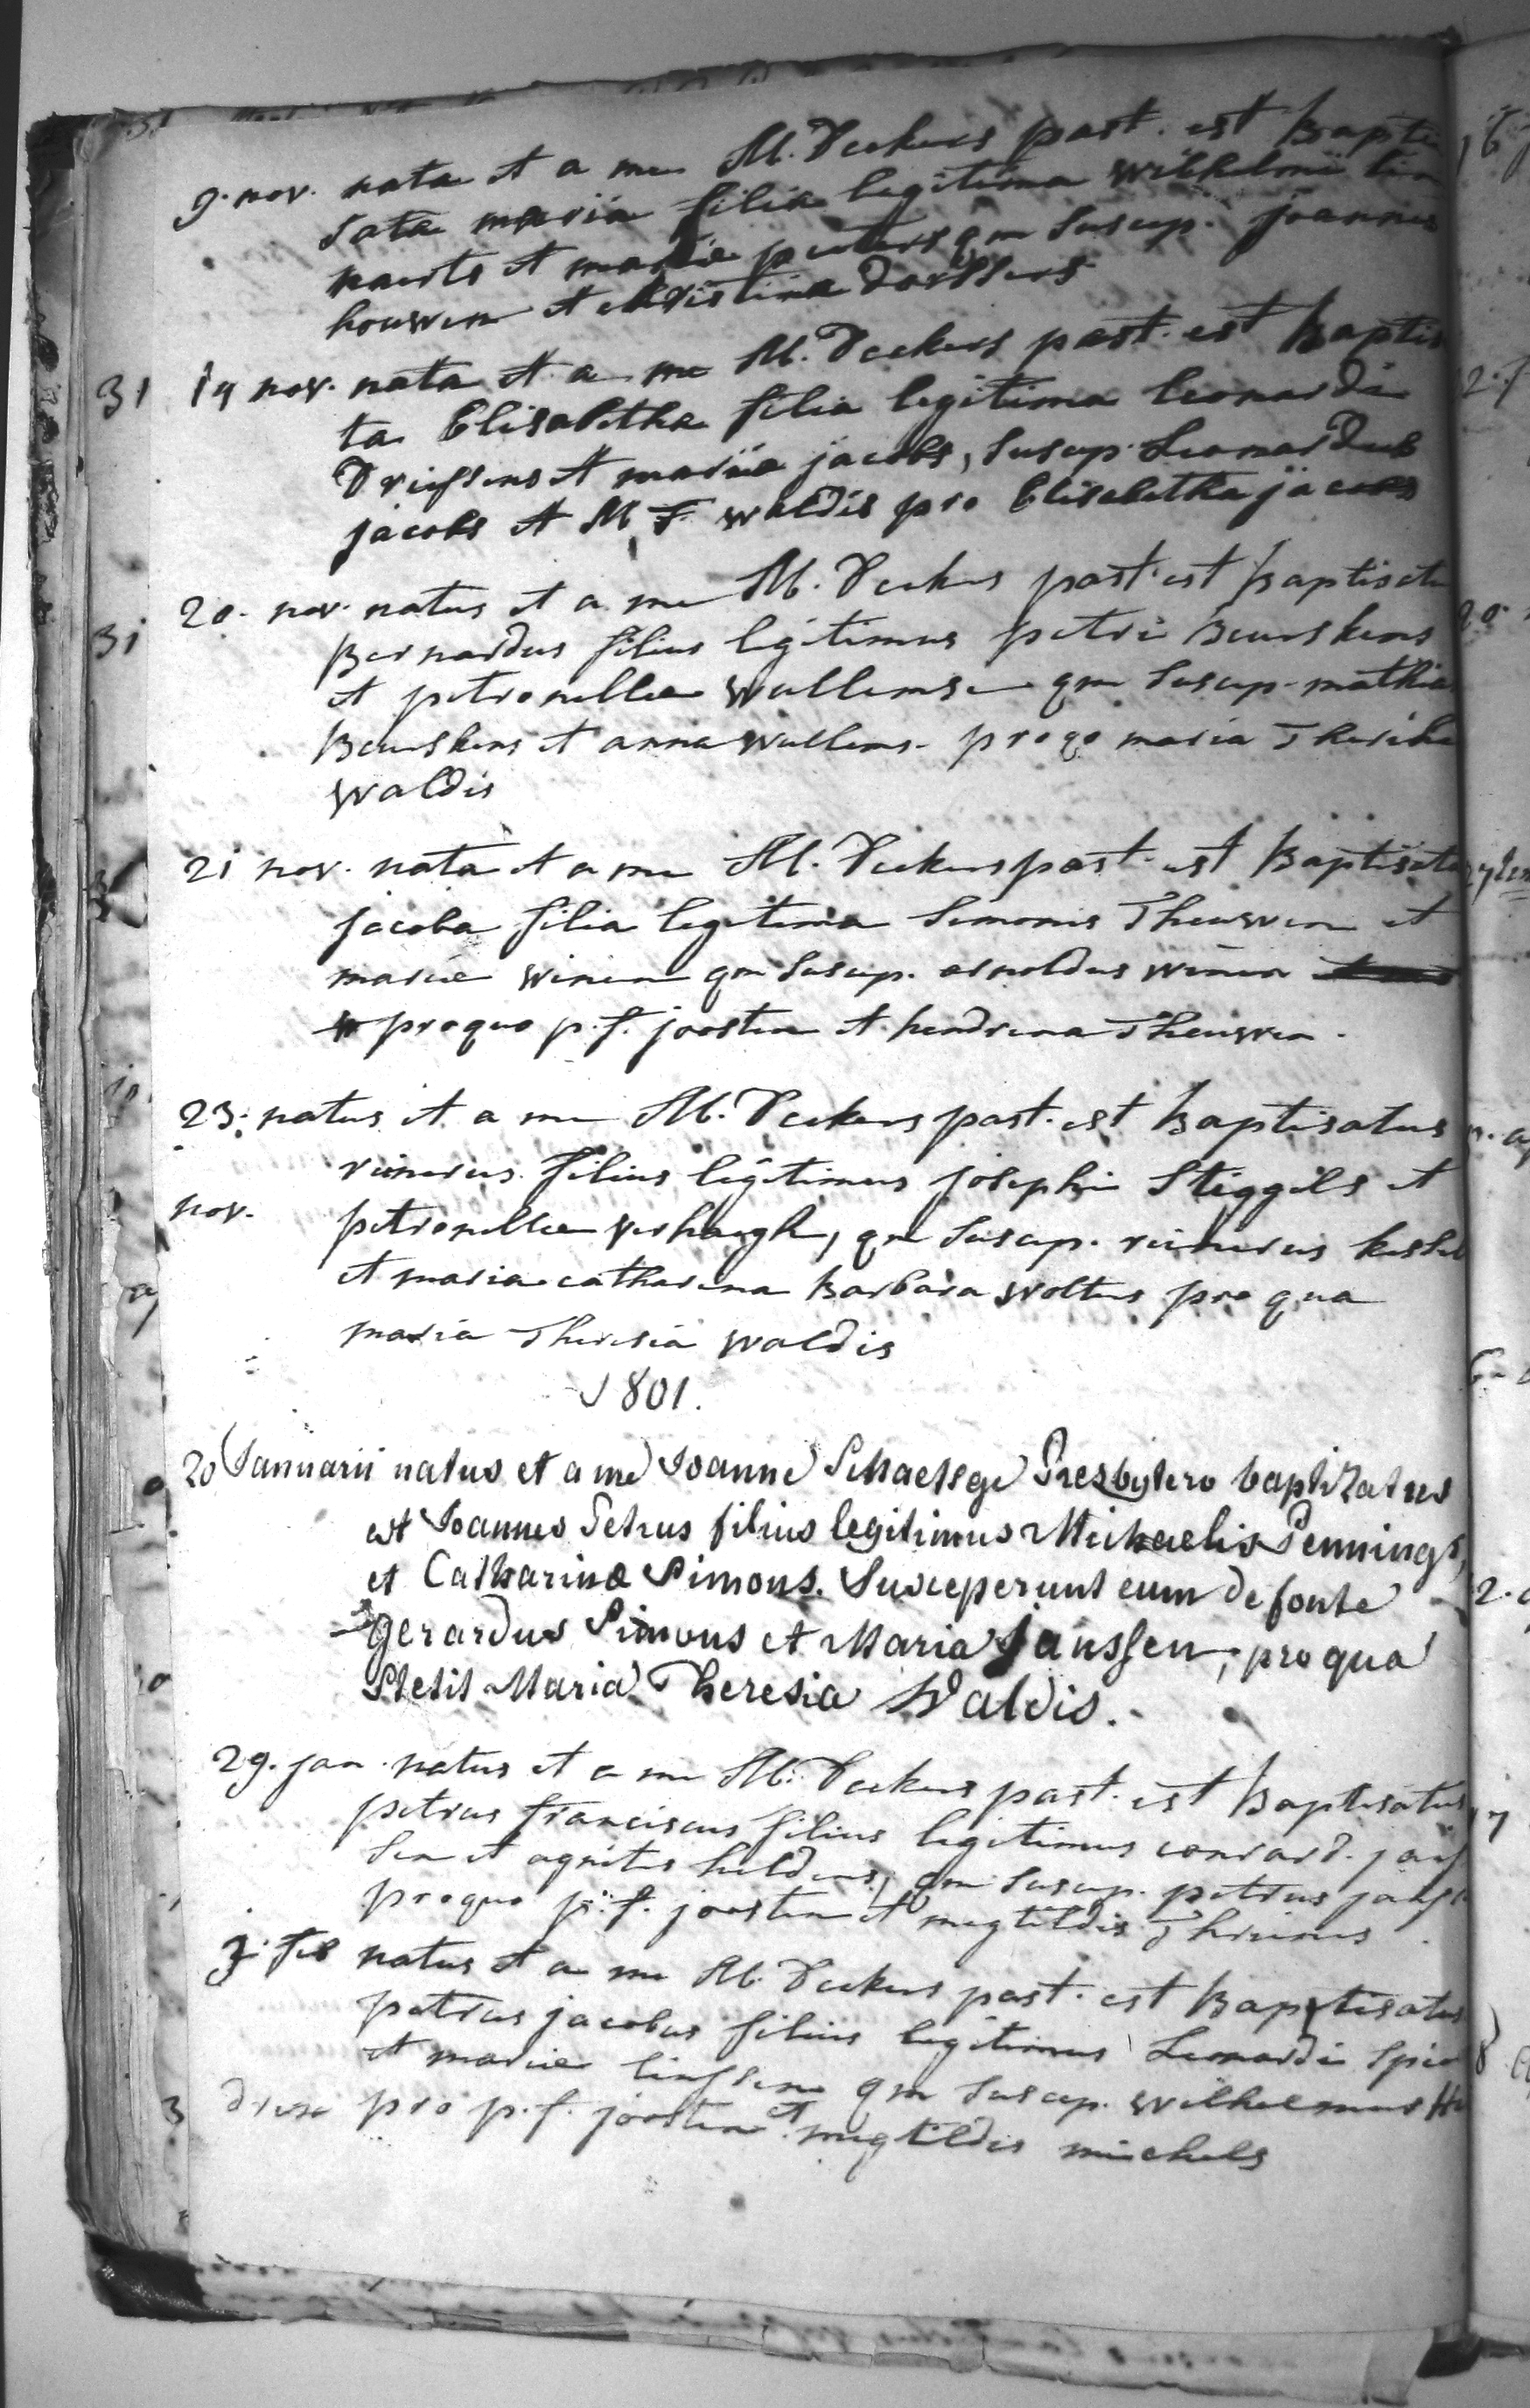 9. nov. nata et a me M. Deckers past. est Bapti
sata maria filia legitima wilhelmi lin
naerts et mariæ peeters qm Suscep. joannes
houwen et christina dorssers
19 nov. nata et a me M. Deckers past. est Baptis
ta Elisabetha filia legitima leonardi
Driessens et mariæ jacobs, Suscep. Leonardus
jacobs et M T waldis pro Elisabetha jacobs
20. nov. natus et a me M. Deckers past. est Baptisatu
Bernardus filius legitimus petri Beurskens
et petronellæ Wullems qm Suscep. mathias
Beurskens et anna wullems. pro qo maria Theresia
waldis
21 nov. nata et a me M. Deckers past. est Baptisata
jacoba filia legitima Simonis Theuwen et
mariæ winen qm Suscep. arnoldus winen
pro quo p. f. joosten et hendrina Theuwen.
23. natus et a me M. Deckers past. est Baptisatus
reinerus filius legitimus josephi Steggels et
nov. petronellæ verhaegh, qm Suscep. reinerus kessel
et maria catharina Barbara wolters pro qua
maria Theresia waldis
1801.
20 Januarii natus et a me Joanne Schaetsge Presbytero baptizatus
est Joannes Petrus filius legitimus Michaelis Pennings,
et Catharinæ Simons. Susceperunt eum de fonte
Gerardus Simons et Maria Janssen, pro qua
Stetit Maria Theresia Waldis.
29. jan. natus et a me M. Deckers past. est Baptisatus
petrus franciscus filius legitimus conrard. jans
sen et agnitis helders, qm Suscep. petrus janse
pro quo p. f. joosten et megtildis Thriens.
3. feb natus et a me M. Deckers past. est Baptisatus
petrus jacobus filius legitimus Leonardi Spie
et mariæ linssen qm Suscep. wilhelmus He
drix pro p. f. joosten et megtildis michels